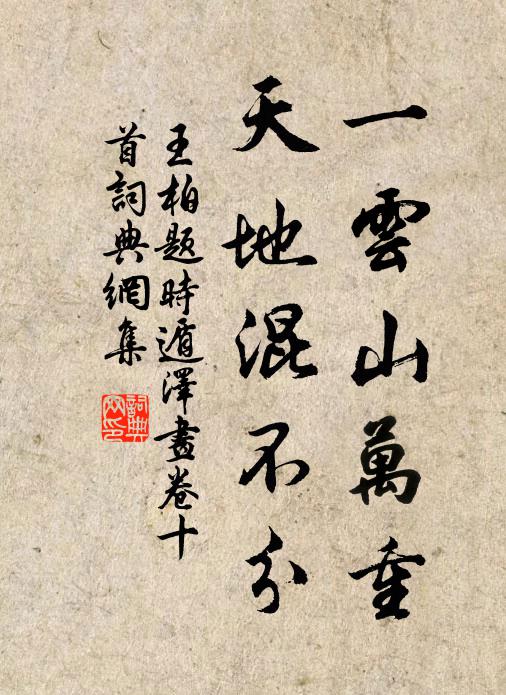 一雲山萬重
天地混不分
王柏題時遁澤畫卷十
首詞典網集
詞典
网印